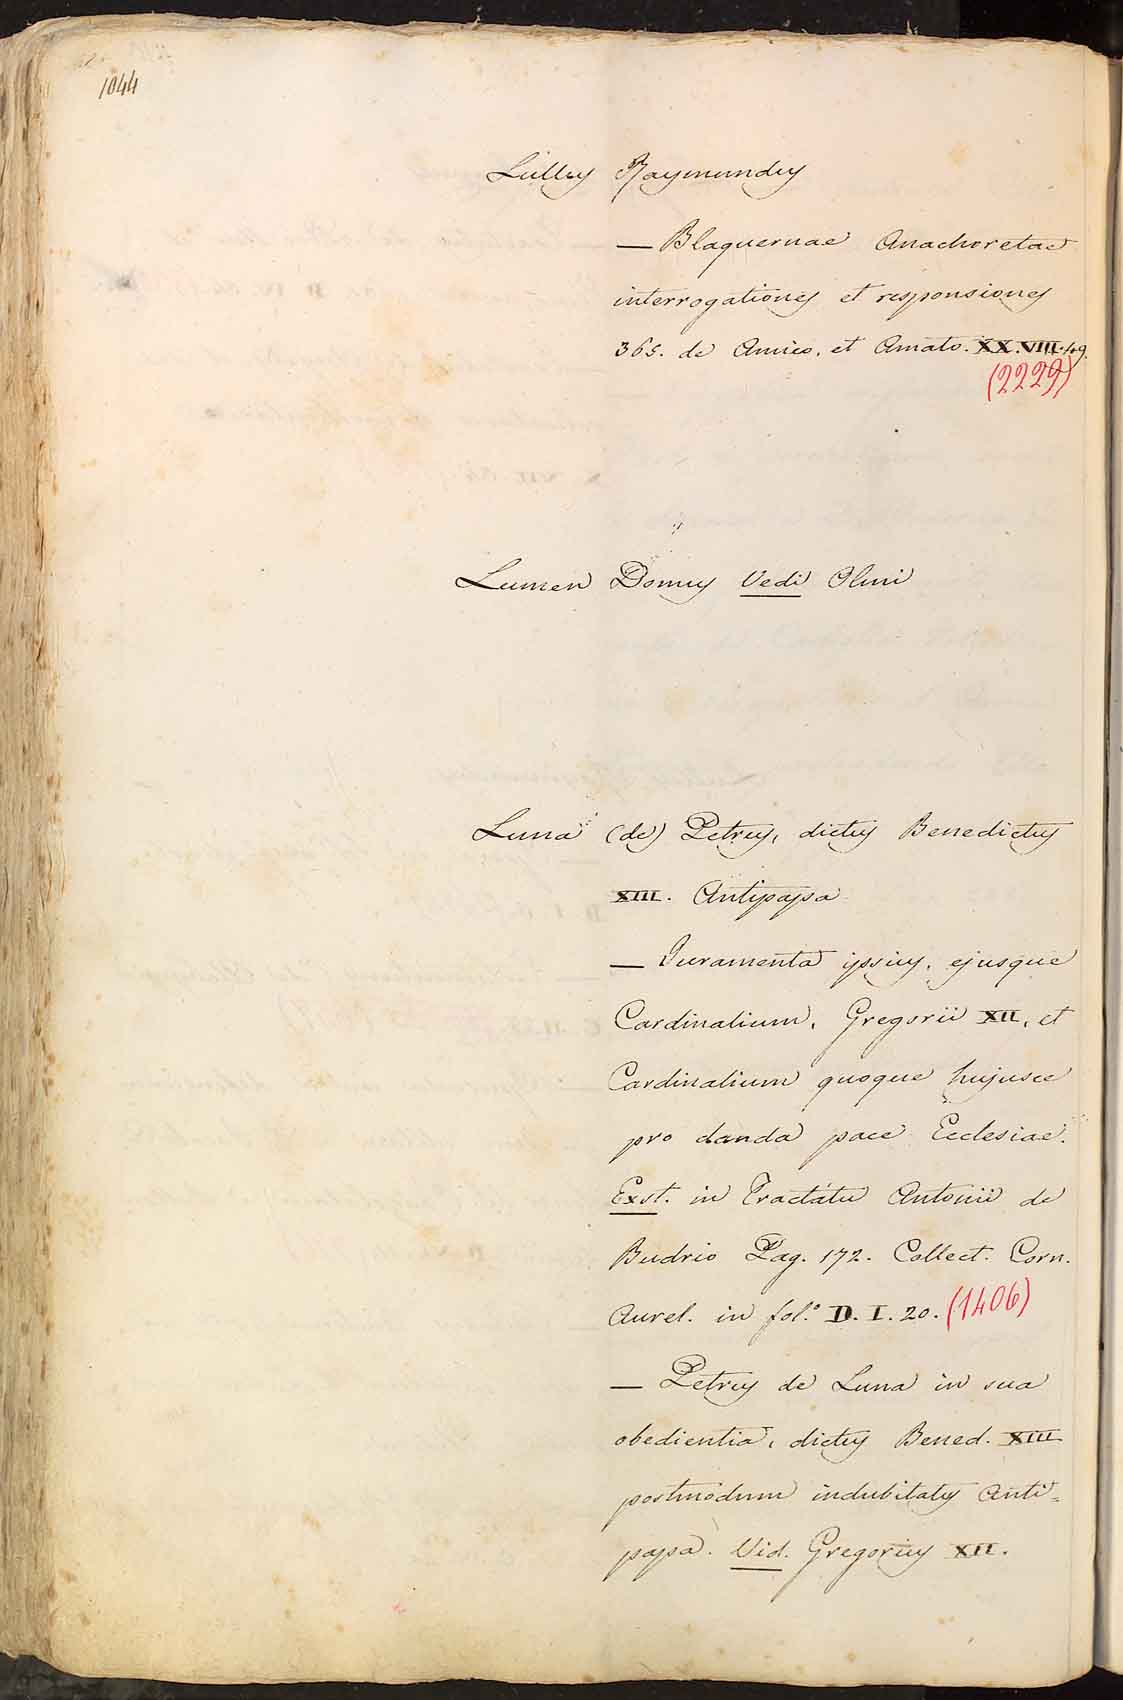 1044
Lullus Raymundus
— Blaquernae Anachoretae
interrogationes et responsiones
365. de Amico, et Amato. XX.VIII.49.
(2229)
Lumen Domus Vedi Olmi
Luna (de) Petrus, dictus Benedictus
XIII. Antipapa
— Juramenta ipsius, ejusque
Cardinalium, Gregorii XII, et
Cardinalium quoque hujusce
pro danda pace Ecclesiae.
Exst. in Tractatu Antonii de
Budrio Pag. 172. Collect. Corn.
Aurel. in fol.º D. I. 20. (1406)
— Petrus de Luna in sua
obedientia, dictus Bened. XIII
postmodum indubitatus Anti=
papa. Vid. Gregorius XII.